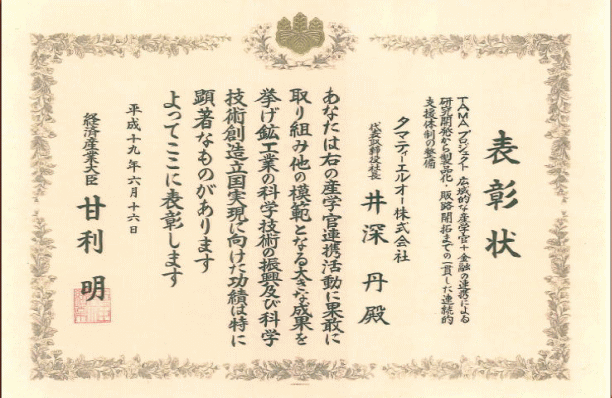 表彰状
TAMAプロジェクト 広域的な産学官+金融の連携による
研究開発から製品化・販路開拓までの一貫した連続的
支援体制の整備
タマティーエルオー株式会社
代表取締役社長
井深 丹 殿
あなたは右の産学官連携活動に果敢に
取り組み他の模範となる大きな成果を
挙げ鉱工業の科学技術の振興及び科学
技術創造立国実現に向けた功績は特に
顕著なものがあります
よってここに表彰します
平成十九年六月十六日
経済産業大臣 甘利 明